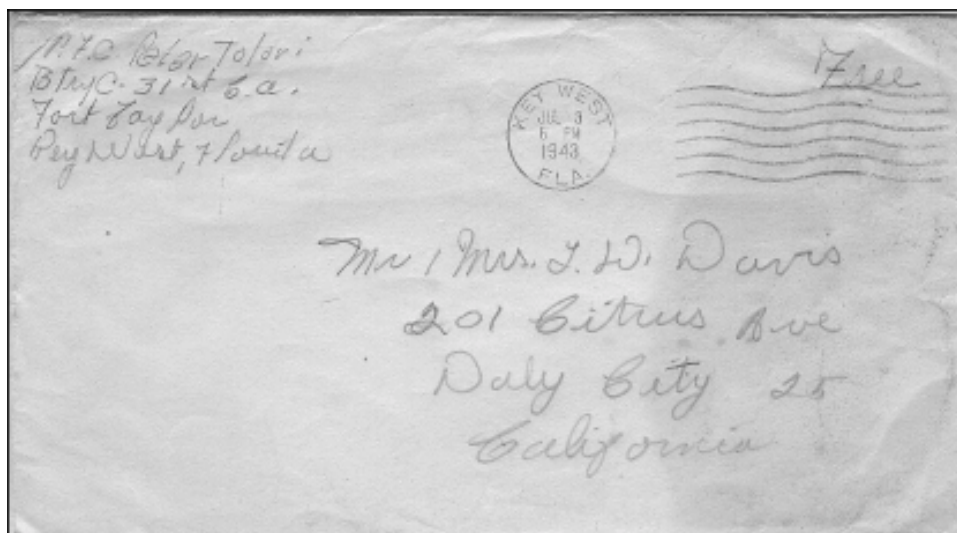 P.F.C. Peter Tolari
Btry C. 31st C.A.
Fort Taylor
Key West, Florida
Free
KEY WEST
JUL 8
6 PM
1943
FLA.
Mr / Mrs. L. W. Davis
201 Citrus Ave
Daly City 25
California